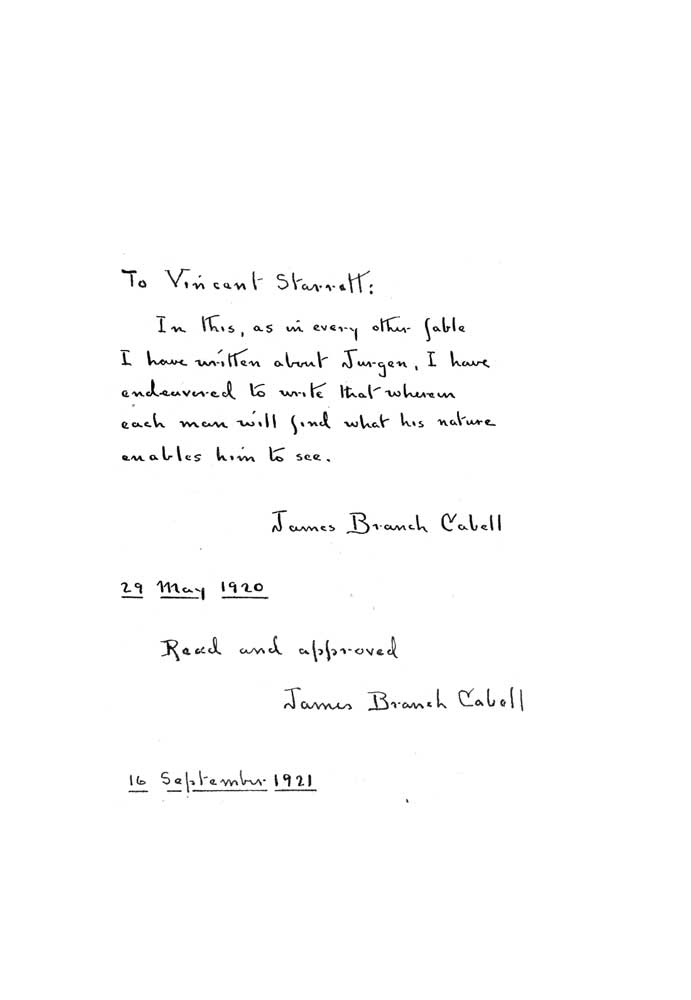 To Vincent Starrett:
In this, as in every other fable
I have written about Jurgen, I have
endeavored to write that wherein
each man will find what his nature
enables him to see.
James Branch Cabell
29 May 1920
Read and approved
James Branch Cabell
16 September 1921